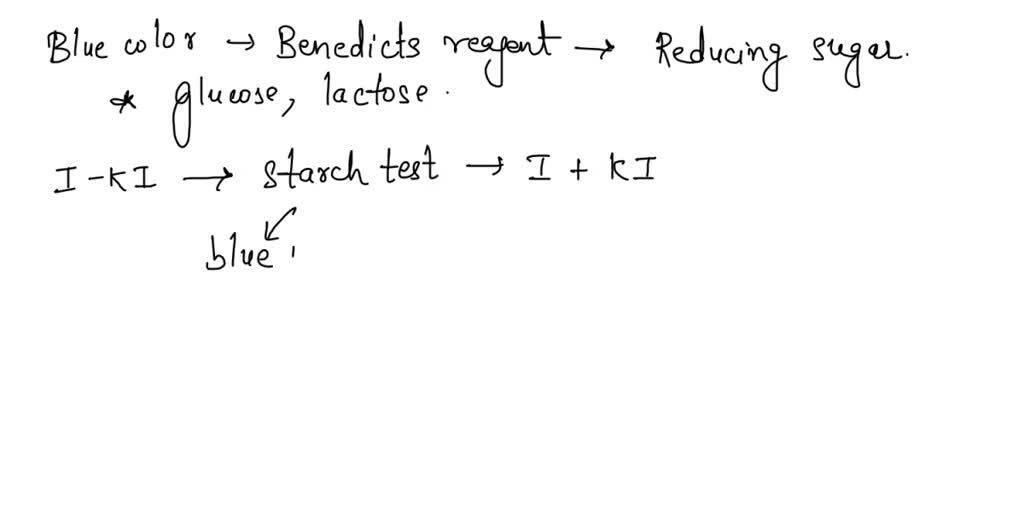 Blue color → Benedicts reagent → Reducing sugar.
* glucose, lactose.
I-KI → starch test → I + KI
blue